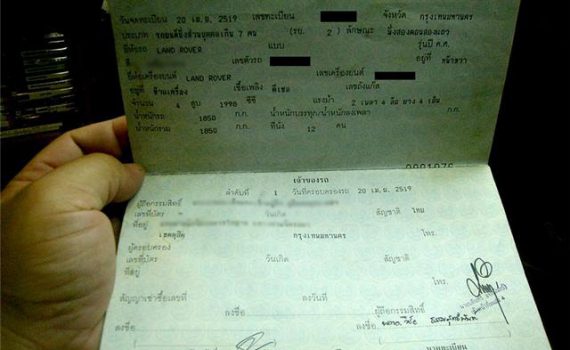 วันจดทะเบียน 20 เม.ย. 2519 เลขทะเบียน จังหวัด กรุงเทพมหานคร
ประเภท รถยนต์นั่งส่วนบุคคลเกิน 7 คน (รย. 2) ลักษณะ นั่งสองตอนสองแถว
ยี่ห้อรถ LAND ROVER แบบ รุ่นปี ค.ศ.
สี เลขตัวรถ อยู่ที่ หน้าขวา
ยี่ห้อเครื่องยนต์ LAND ROVER เลขเครื่องยนต์
อยู่ที่ ข้างเครื่อง เชื้อเพลิง ดีเซล เลขถังแก๊ส
จำนวน 4 สูบ 1998 ซีซี แรงม้า 2 เพลา 4 ล้อ ยาง 4 เส้น
น้ำหนักรถ 1850 ก.ก. น้ำหนักบรรทุก/น้ำหนักลงเพลา ก.ก.
น้ำหนักรวม 1850 ก.ก. ที่นั่ง 12 คน
เจ้าของรถ
ลำดับที่ 1 วันที่ครอบครองรถ 20 เม.ย. 2519
ผู้ถือกรรมสิทธิ์
เลขที่บัตร วันเกิด สัญชาติ ไทย
ที่อยู่
เขตดุสิต กรุงเทพมหานคร โทร.
ผู้ครอบครอง
เลขที่บัตร วันเกิด สัญชาติ
ที่อยู่ โทร.
สัญญาเช่าซื้อเลขที่ ลงวันที่ ผู้ถือกรรมสิทธิ์
ลงชื่อ ลงชื่อ ลงชื่อ
นายทะเบียน